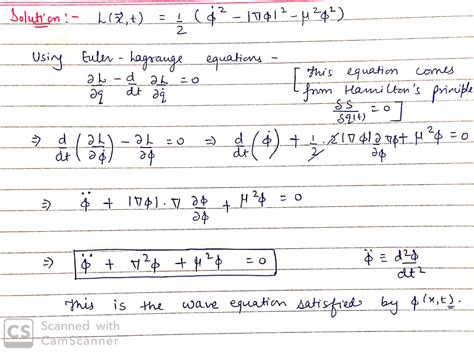 Solution :- L(x⃗,t) = 1/2 ( φ̇² - |∇φ|² - μ²φ² )
Using Euler-Lagrange equations -
∂L/∂q - d/dt ∂L/∂q̇ = 0
[ This equation comes from Hamilton's principle δS/δq(t) = 0 ]
⇒ d/dt (∂L/∂φ̇) - ∂L/∂φ = 0 ⇒ d/dt (φ̇) + 1/2 · 2|∇φ| ∂∇φ/∂φ + μ²φ = 0
⇒ φ̈ + |∇φ|·∇ ∂φ/∂φ + μ²φ = 0
⇒ φ̈ + ∇²φ + μ²φ = 0 φ̈ ≡ d²φ/dt²
This is the wave equation satisfied by φ(x,t).
CS Scanned with
CamScanner